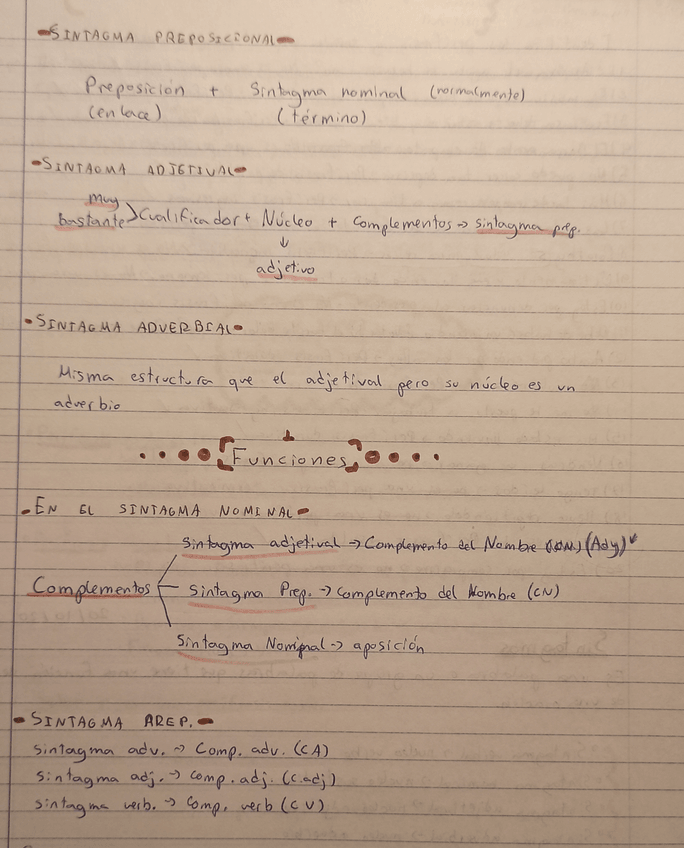 SINTAGMA PREPOSICIONAL
Preposición + Sintagma nominal (normalmente)
(enlace) (término)
SINTAGMA ADJETIVAL
muy
bastante > Cualificador + Núcleo + Complementos → sintagma prep.
↓
adjetivo
SINTAGMA ADVERBIAL
Misma estructura que el adjetival pero su núcleo es un
adverbio
Funciones
EN EL SINTAGMA NOMINAL
Sintagma adjetival → Complemento del Nombre (Ady)*
Complementos
Sintagma Prep. → Complemento del Nombre (CN)
Sintagma Nominal → aposición
SINTAGMA AREP.
Sintagma adv. → Comp. adv. (CA)
Sintagma adj. → comp. adj. (C.adj)
Sintagma verb. → Comp. verb (CV)